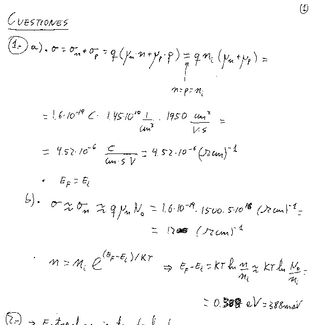 ①
CUESTIONES
1.- a). σ = σn + σp = q(μn·n + μp·p) = q ni (μn + μp) =
n=p=ni
= 1.6·10⁻¹⁹ C · 1.45·10¹⁰ 1/cm³ · 1950 cm²/V·s =
= 4.52·10⁻⁶ C/cm·s·V = 4.52·10⁻⁶ (Ωcm)⁻¹
• EF = Ei
b). σ ≈ σn ≈ q μn ND = 1.6·10⁻¹⁹ · 1500 · 5·10¹⁶ (Ωcm)⁻¹ =
= (Ωcm)⁻¹
• n = ni e^(EF-Ei)/KT ⇒ EF-Ei = KT ln n/ni ≈ KT ln ND/ni =
= 0.388 eV = 388meV
2.- ⇒